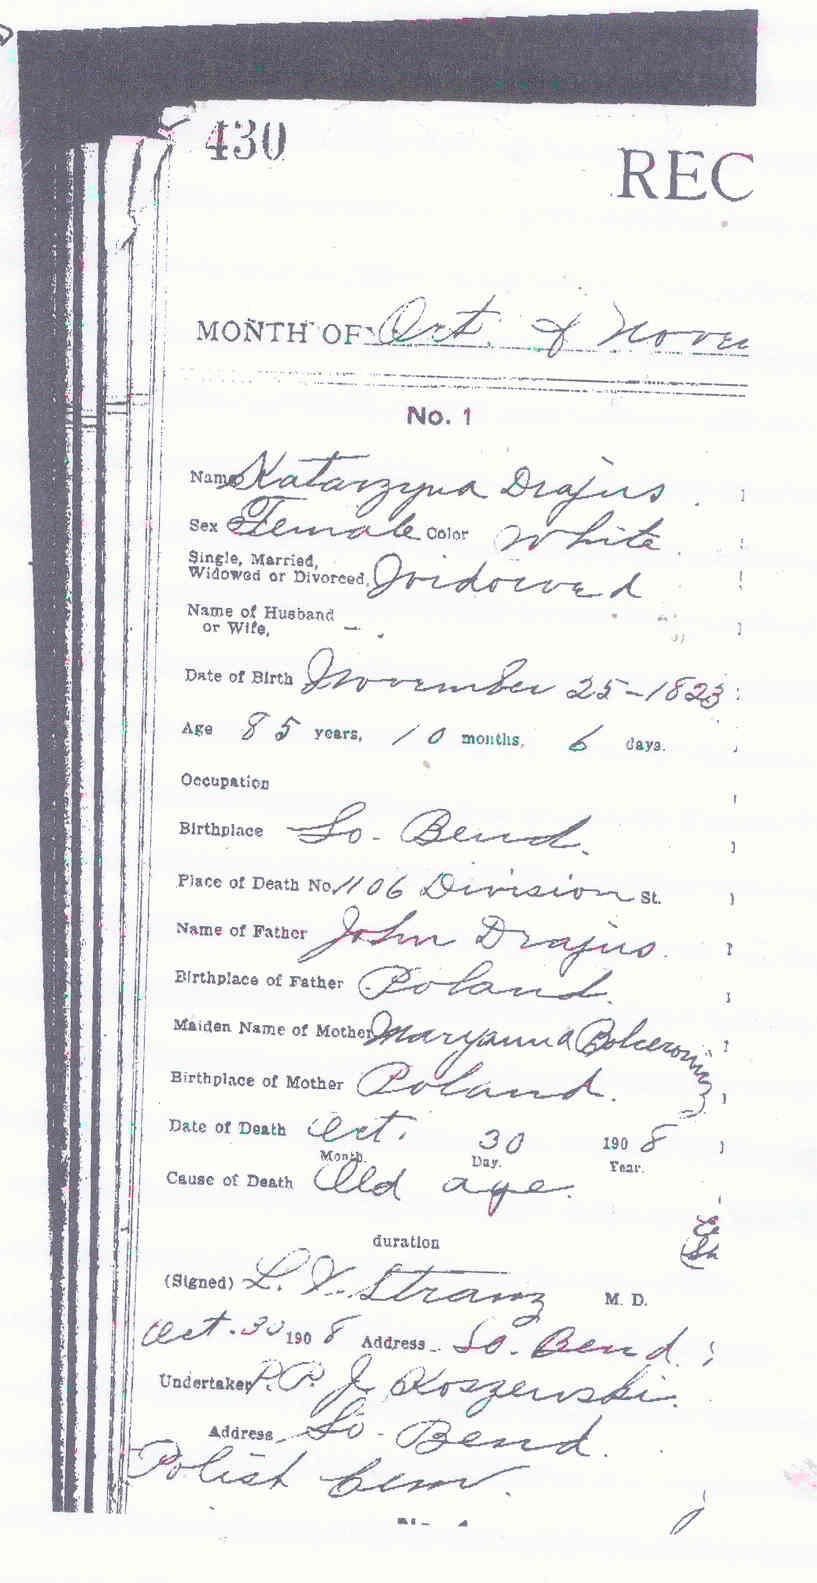 430
REC
MONTH OF Oct. & Nove
No. 1
Name Katarzyna Drajus.
Sex Female Color White.
Single, Married,
Widowed or Divorced, Widowed
Name of Husband
or Wife, - .
Date of Birth November 25-1823
Age 85 years, 10 months, 6 days.
Occupation
Birthplace So. Bend.
Place of Death No. 1106 Division St.
Name of Father John Drajus.
Birthplace of Father Poland.
Maiden Name of Mother Maryanna
Birthplace of Mother Poland.
Date of Death Oct. 30 1908
Month. Day. Year.
Cause of Death Old age.
duration
(Signed) M. D.
Oct. 30 1908 Address So. Bend.
Undertaker P. P. J. Koszewski.
Address So. Bend.
Polish Cem.